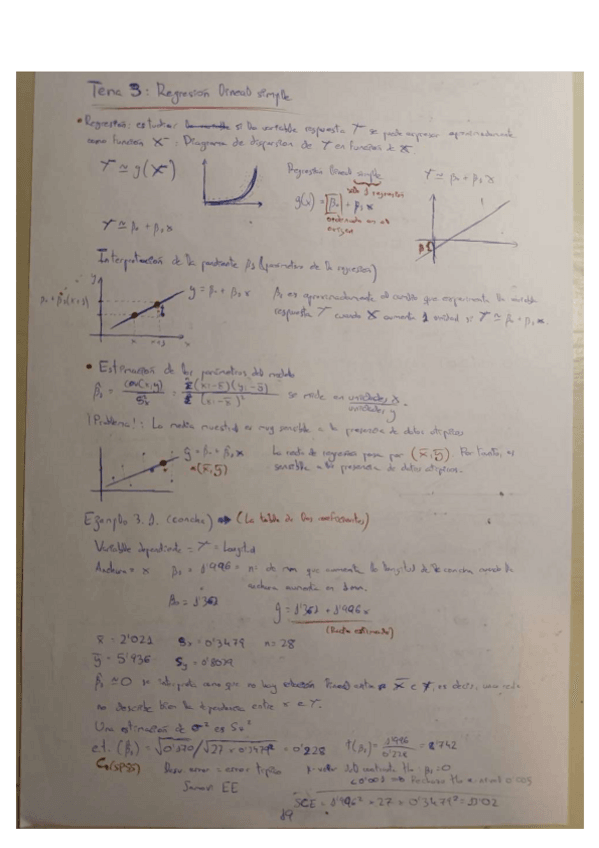 Tema 3: Regresión lineal simple
• Regresión: estudiar si la variable respuesta Y se puede expresar aproximadamente
como función X. Diagrama de dispersión de Y en función de X.
Y ≃ g(X)
Regresión lineal simple
solo 1 regresor
g(x) = β₀ + β₁ x
ordenada en el
origen
Y ≃ β₀ + β₁ X
β₀
Y ≃ β₀ + β₁ x
Interpretación de la pendiente β₁ (parámetro de la regresión)
y
y = β₀ + β₁ x
β₀ + β₁(x+1)
x x+1 x
β₁ es aproximadamente el cambio que experimenta la variable
respuesta Y cuando X aumenta 1 unidad si Y ≃ β₀ + β₁ x.
• Estimación de los parámetros del modelo
β̂₁ = cov(x,y) / S²ₓ = Σ(xᵢ-x̄)(yᵢ-ȳ) / Σ(xᵢ-x̄)² se mide en unidades x / unidades y
¡Problema!: La media muestral es muy sensible a la presencia de datos atípicos
ŷ = β̂₀ + β̂₁ x
(x̄, ȳ)
La recta de regresión pasa por (x̄, ȳ). Por tanto, es
sensible a la presencia de datos atípicos.
Ejemplo 3.1. (conchas) → (La tabla de los coeficientes)
Variable dependiente = Y = Longitud
Anchura = x β₁ = 1'996 = nº de mm que aumenta la longitud de la concha cuando la
anchura aumenta en 1mm.
β₀ = 1'361
ŷ = 1'361 + 1'996 x
(Recta estimada)
x̄ = 2'021 Sₓ = 0'3479 n = 28
ȳ = 5'936 Sy = 0'8079
β̂₁ ≃ 0 se interpreta como que no hay relación lineal entre X e Y, es decir, una recta
no describe bien la dependencia entre x e Y.
Una estimación de σ² es S_R²
e.t. (β₁) = √0'170 / √27 × 0'3479² = 0'228 t(β₁) = 1'996 / 0'228 = 8'742
(SPSS) Desv. error = error típico p-valor del contraste H₀: β₁ = 0
<0'001 ⇒ Rechazo H₀ a nivel 0'005
SCE = 1'996² × 27 × 0'3479² = 13'02
19